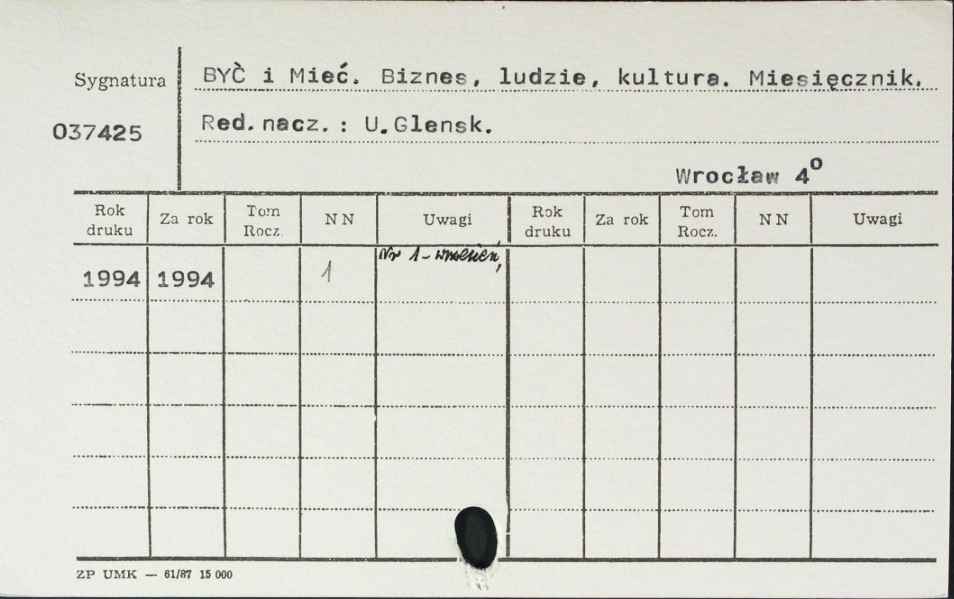 Sygnatura
BYĆ i Mieć. Biznes, ludzie, kultura. Miesięcznik.
037425
Red. nacz. : U. Glensk.
Wrocław 4⁰
Rok druku Za rok Tom Rocz. N N Uwagi Rok druku Za rok Tom Rocz. N N Uwagi
Nr 1 - wrzesień,
1994 1994 1
ZP UMK — 61/87 15 000